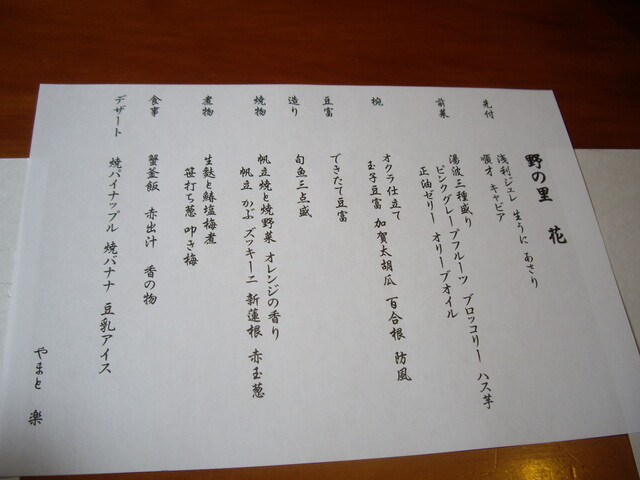 野の里 花
先付
浅利ジュレ 生うに あさり
順才 キャビア
前菜
湯波三種盛り
ピンクグレープフルーツ ブロッコリー ハス芋
正油ゼリー オリーブオイル
椀
オクラ仕立て
玉子豆富 加賀太胡瓜 百合根 防風
豆富
できたて豆富
造り
旬魚三点盛
焼物
帆立焼と焼野菜 オレンジの香り
帆立 かぶ ズッキーニ 新蓮根 赤玉葱
煮物
生麩と鰆塩梅煮
笹打ち葱 叩き梅
食事
蟹釜飯 赤出汁 香の物
デザート
焼パイナップル 焼バナナ 豆乳アイス
やまと 楽